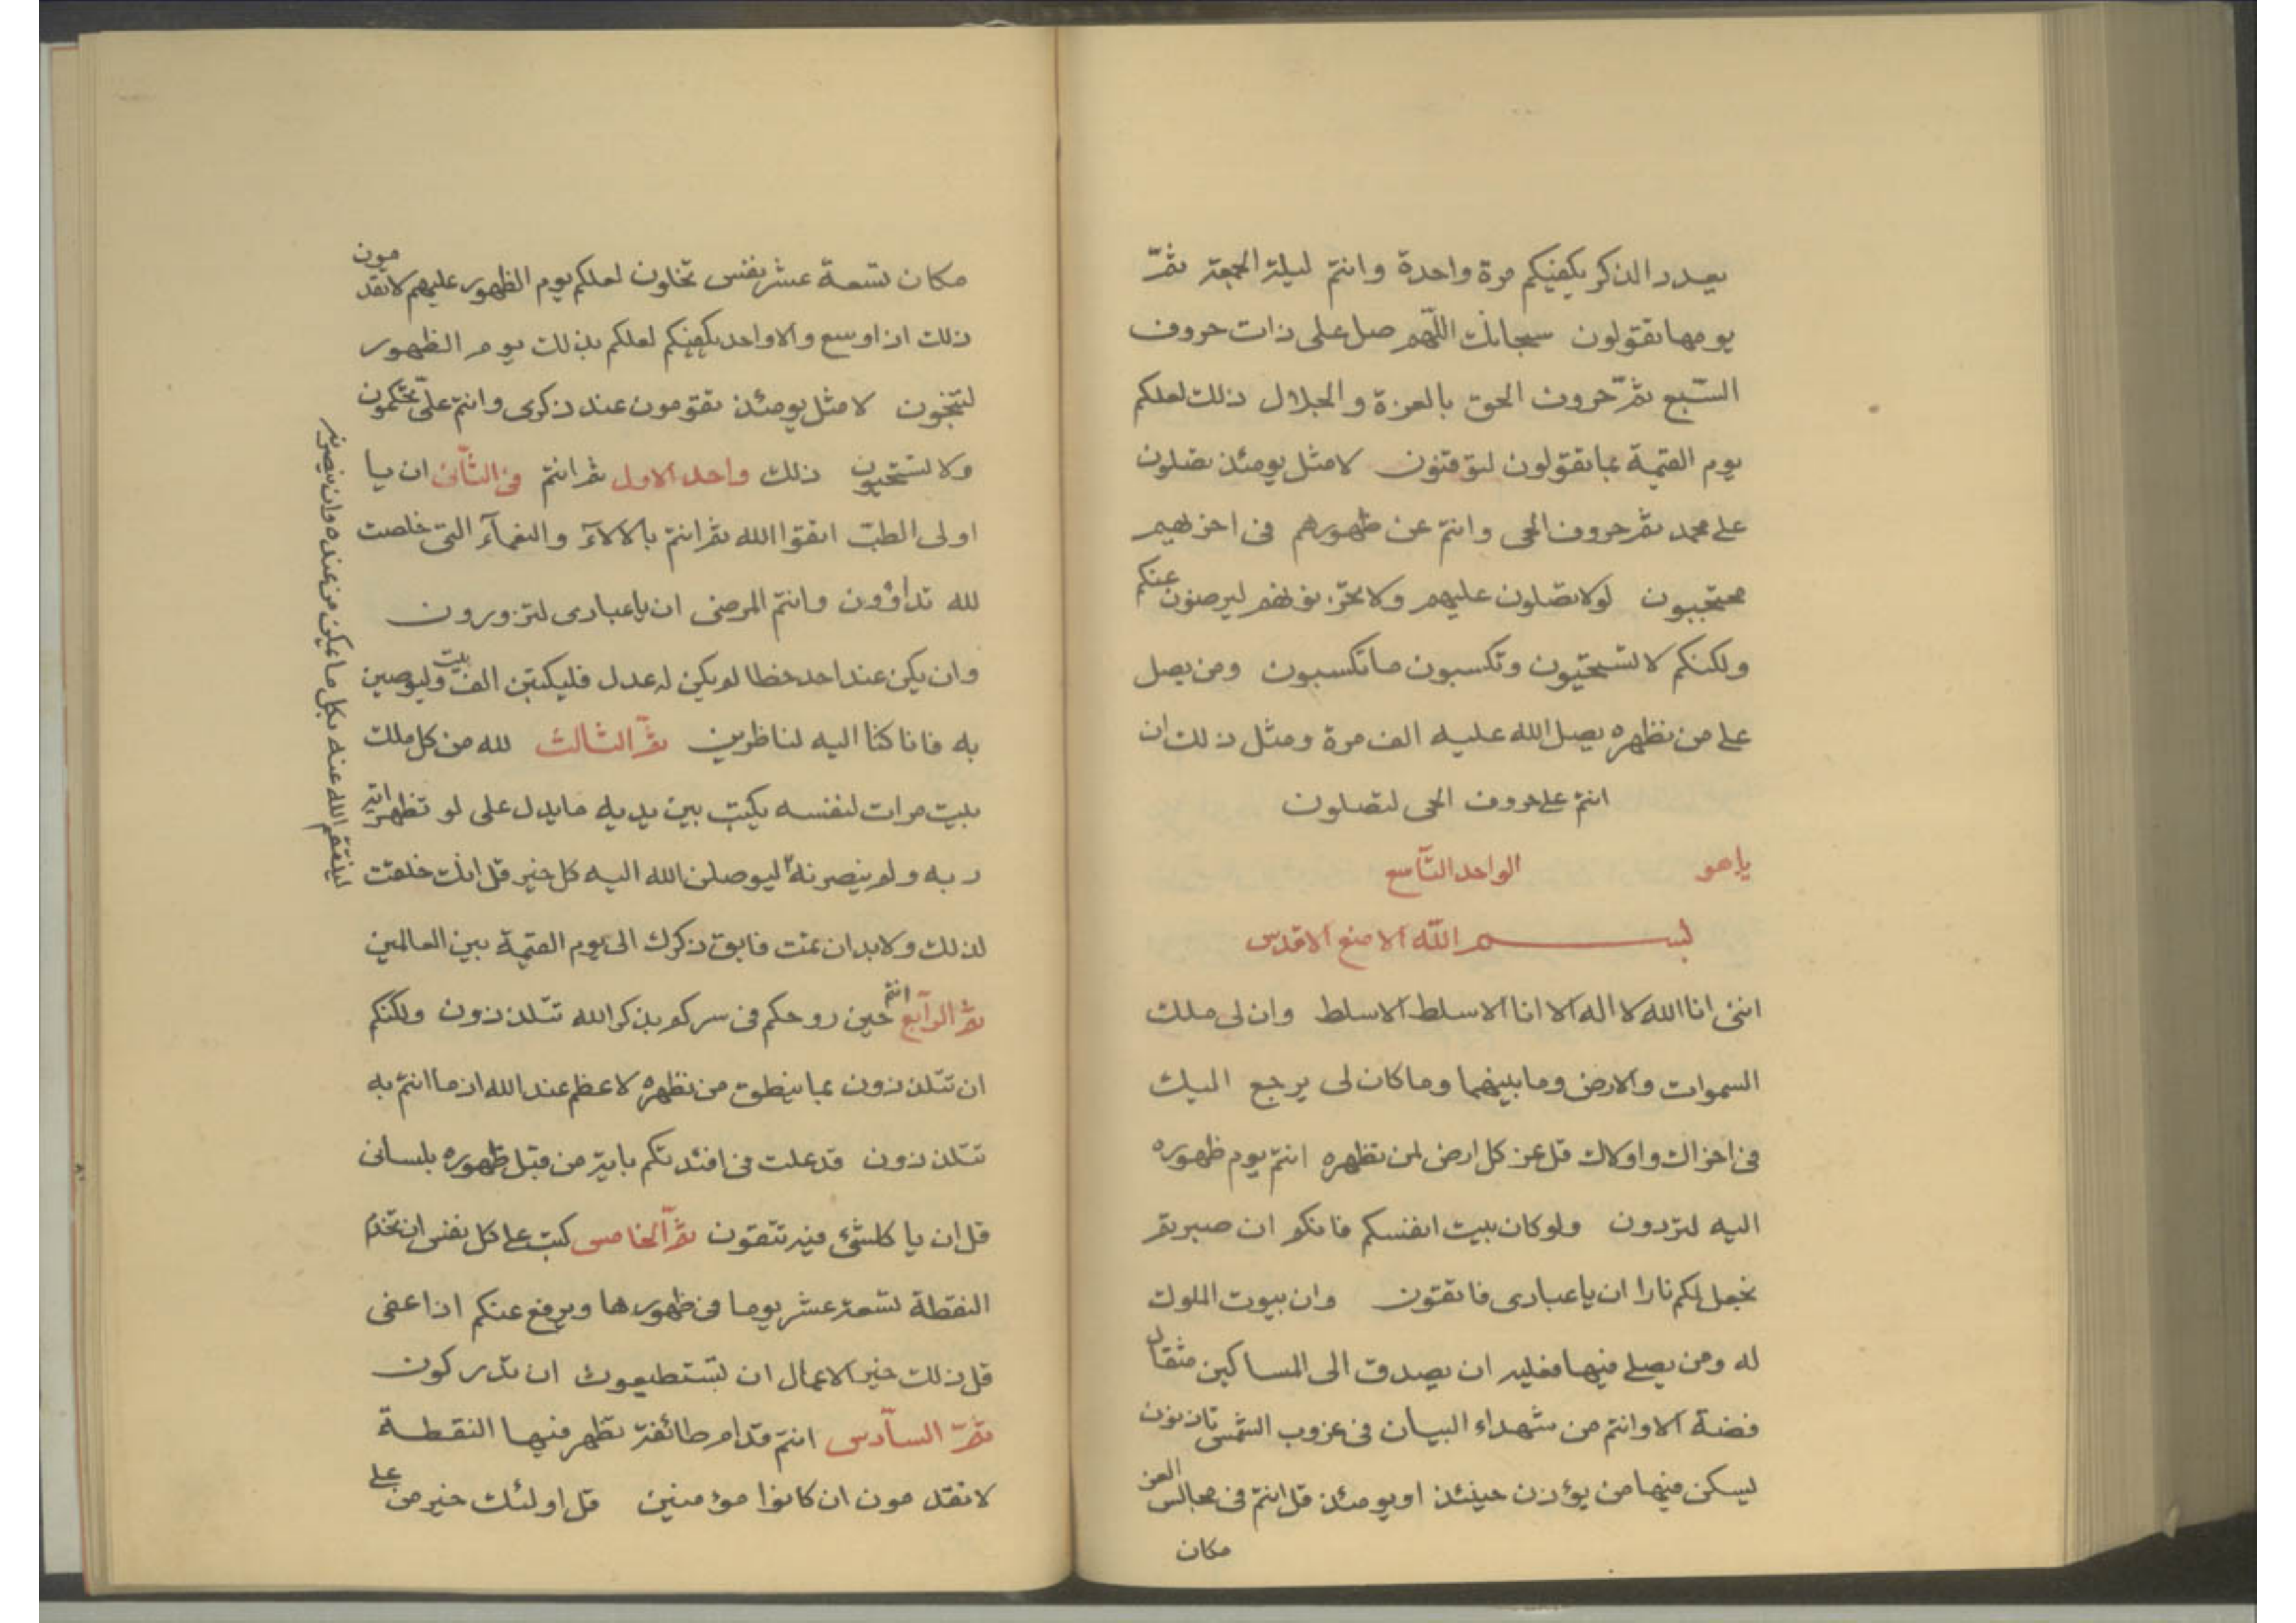 بعدد الذكر يكفيكم مرة واحدة وانتم ليلة الجمعة ثمّ
يومها تقولون سبحانك اللّهم صل على ذات حروف
السّبع ثمّ حروف الحق بالعزة والجلال ذلك لعلكم
يوم القيمة بما تقولون لتوقنون لا مثل يومئذ تصلون
على محمد ثم حروف الحى وانتم عن ظهورهم فى اخريهم
محتجبون لو لا تصلون عليهم ولا تحزنونهم ليرضون عنكم
ولكنكم لا تستحيون وتكسبون ما تكسبون ومن يصل
على من نظهره يصل الله عليه الف مرة ومثل ذلك ان
انتم على حروف الحى لتصلون
ياهو الواحد التّاسع
بسم الله الامنع الاقدس
اننى انا الله لا اله الا انا الاسلط الاسلط وان لى ملك
السموات والارض وما بينهما وما كان لى يرجع اليك
فى اخراك واولاك قل عز كل ارض لمن نظهره انتم يوم ظهوره
اليه لتردون ولو كان بيت انفسكم فانكم ان صبرتم
نجعل لكم نارا ان ياعبادى فاتقون وان بيوت الملوك
له ومن يصلى فيها فعليه ان يصدق الى المساكين مثقال
فضة الا وانتم من شهداء البيان فى غروب الشمس تاذنون
ليسكن فيها من يؤذن حينئذ او يومئذ قل انتم فى مجالس العز
مكان
مكان تسعة عشر نفس تخلون لعلكم يوم الظهور عليهم لا تقدمون
ذلك اذا وسع والا واحد يكفيكم لعلكم بذلك يوم الظهور
لتنجون لا مثل يومئذ تقومون عند ذكرى وانتم علىّ تحكمون
ولا تستحيون ذلك واحد الاول ثم انتم فى الثّانى ان يا
اولى الطب اتقوا الله ثم انتم بالالآء والنعمآء التى خلصت
لله تداوٌون وانتم المرضى ان ياعبادى لتزورون
وان يكن عند احد خطا لم يكن له عدل فليكتبن الف بيت وليوصين
به فانا كنا اليه لناظرين ثم الثالث لله من كل ملك
بيت مرات لنفسه يكتب بين يديه ما يدل على لو تظهر اية
ربه ولم ينصرنه ليوصلن الله اليه كل خير قل انك خلقت
لذلك ولابد ان تمت فابق ذكرك الى يوم القيمة بين العالمين
ثم الرّابع انتم حين روحكم فى سركم بذكر الله تتلذذون ولكنكم
ان تتلذذون بما ينطق من نظهره لاعظم عند الله اذ ما انتم به
تتلذذون قد علت فى افئدتكم باية من قبل ظهوره بلسانى
قل ان يا كلشئ فيه تتقون ثم الخامس كتب على كل نفس ان تخدم
النقطة تسعة عشر يوما فى ظهورها ويرفع عنكم اذا عفى
قل ذلك خير الاعمال ان تستطيعون ان تدركون
ثمّ السّادس انتم قدام طائفة تظهر فيها النقطة
لا تقدمون ان كانوا مؤمنين قل اولئك خير من على
لينتقم الله عنه بكل ما يمكن من عنده وان ينصرنه